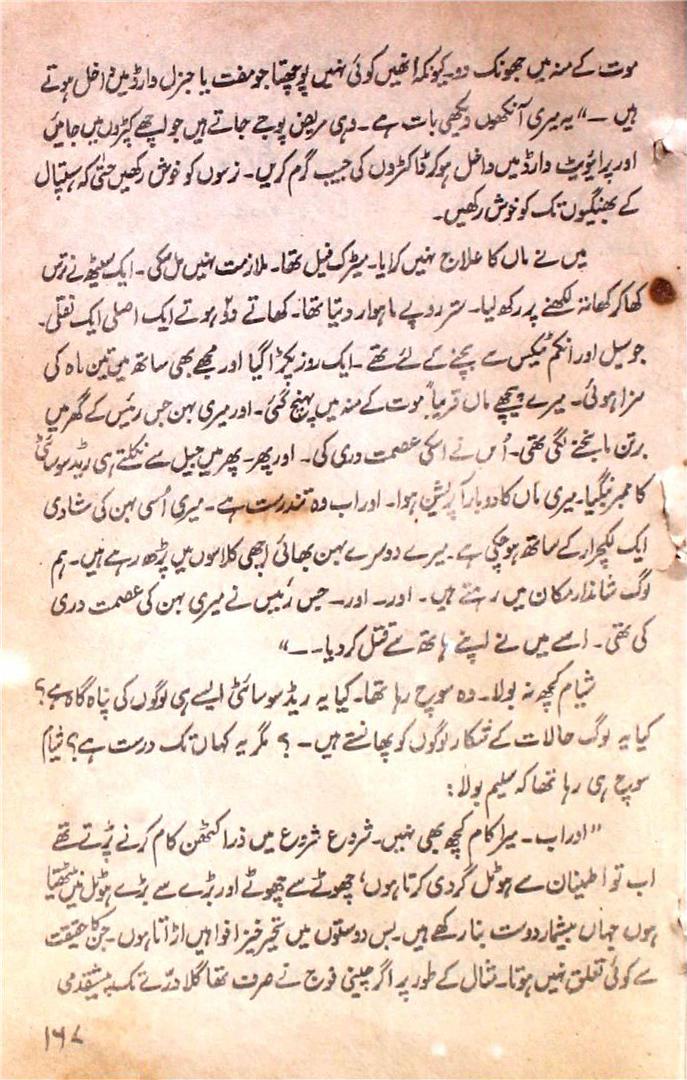 موت کے منہ میں جھونک دو۔ کیونکہ انھیں کوئی نہیں پوچھتا جو مفت یا جنرل وارڈ میں داخل ہوتے
ہیں ۔۔" یہ میری آنکھوں دیکھی بات ہے۔ وہی مریض پوجے جاتے ہیں جو اچھے کپڑوں میں جائیں
اور پرائیویٹ وارڈ میں داخل ہو کر ڈاکٹروں کی جیب گرم کریں۔ نرسوں کو خوش رکھیں حتٰی کہ ہسپتال
کے بھنگیوں تک کو خوش رکھیں۔
میں نے ماں کا علاج نہیں کرایا۔ میٹرک فیل تھا۔ ملازمت نہیں مل سکی۔ ایک سیٹھ نے ترس
کھا کر کھاتہ لکھنے پر رکھ لیا۔ ستر روپے ماہوار دیتا تھا۔ کھاتے دو ہوتے ایک اصلی ایک نقلی۔
جو سیل اور انکم ٹیکس سے بچنے کے لئے تھے۔ ایک روز پکڑا گیا اور مجھے بھی ساتھ میں تین ماہ کی
سزا ہوئی۔ میرے پیچھے ماں قریباً موت کے منہ میں پہنچ گئی۔ اور میری بہن جس رئیس کے گھر میں
برتن مانجنے لگی تھی۔ اُس نے اسکی عصمت دری کی۔ اور پھر۔ پھر میں جیل سے نکلتے ہی ریڈ سوسائٹی
کا ممبر بن گیا۔ میری ماں کا دوبارا آپریشن ہوا۔ اور اب وہ تندرست ہے۔ میری اُسی بہن کی شادی
ایک لکچرار کے ساتھ ہو چکی ہے۔ میرے دوسرے بہن بھائی اچھی کلاسوں میں پڑھ رہے ہیں۔ ہم
لوگ شاندار مکان میں رہتے ہیں۔ اور۔ اور۔ جس رئیس نے میری بہن کی عصمت دری
کی تھی۔ اسے میں نے اپنے ہاتھ سے قتل کر دیا۔۔"
شیام کچھ نہ بولا۔ وہ سوچ رہا تھا۔ کیا یہ ریڈ سوسائٹی ایسے ہی لوگوں کی پناہ گاہ ہے؟
کیا یہ لوگ حالات کے شکار لوگوں کو پھانستے ہیں۔ ؟ مگر یہ کہاں تک درست ہے؟ شیام
سوچ ہی رہا تھا کہ سلیم بولا:
"اور اب۔ میرا کام کچھ بھی نہیں۔ شروع شروع میں ذرا کٹھن کام کرنے پڑتے تھے
اب تو اطمینان سے ہوٹل گردی کرتا ہوں، چھوٹے سے چھوٹے اور بڑے سے بڑے ہوٹل میں بیٹھتا
ہوں جہاں بیشمار دوست بنا رکھے ہیں۔ بس دوستوں میں تحیر خیز افواہیں اڑاتا ہوں۔ جن کا حقیقت
سے کوئی تعلق نہیں ہوتا۔ مثال کے طور پر اگر چینی فوج نے صرف تھا گلا درّے تک پیشقدمی
۱۶۷